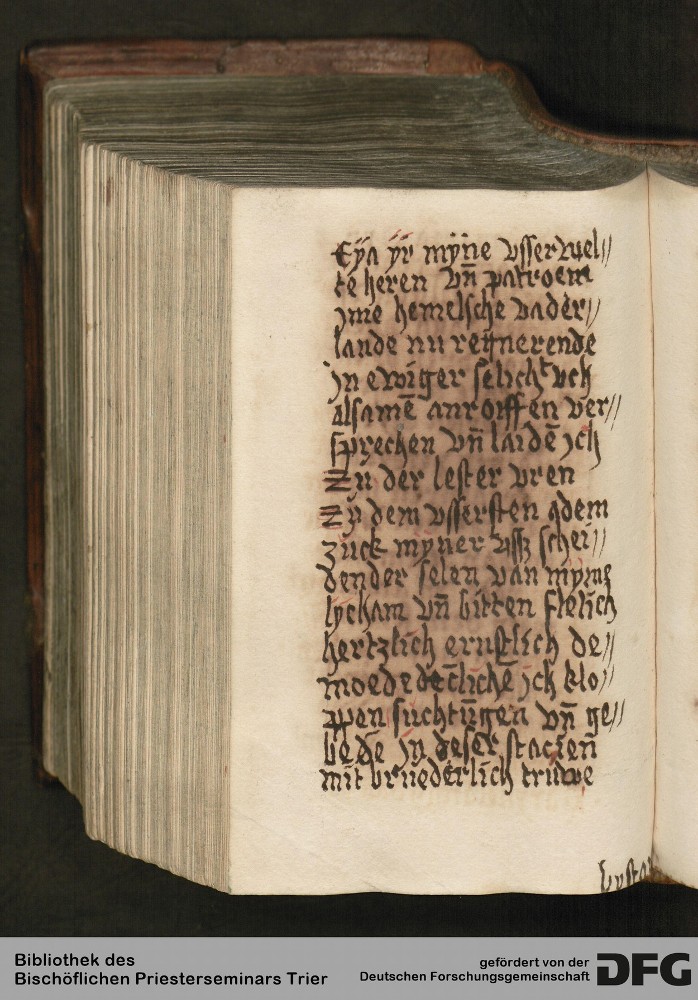 Eÿa ÿr mÿne vsserwel//
te heren vn̄ patroem
jme hemelsche vader//
lande nu reijnerende
jn ewiger selich^t vch
alsamē anroiffen ver//
sprechen vn̄ laidē jch
Zu der lester vren
Zu dem vssersten adem
zuck mÿner vsß schei//
dender selen van mÿme
lÿcham vn̄ bitten flelich
hertzlich ernstlich de//
moededeclichē jch klo//
ppen suchtūgen vn̄ ge//
bede in deser stacien̄
mit bruederlich truwe
bysta
Bibliothek des
Bischöflichen Priesterseminars Trier
gefördert von der
Deutschen Forschungsgemeinschaft DFG